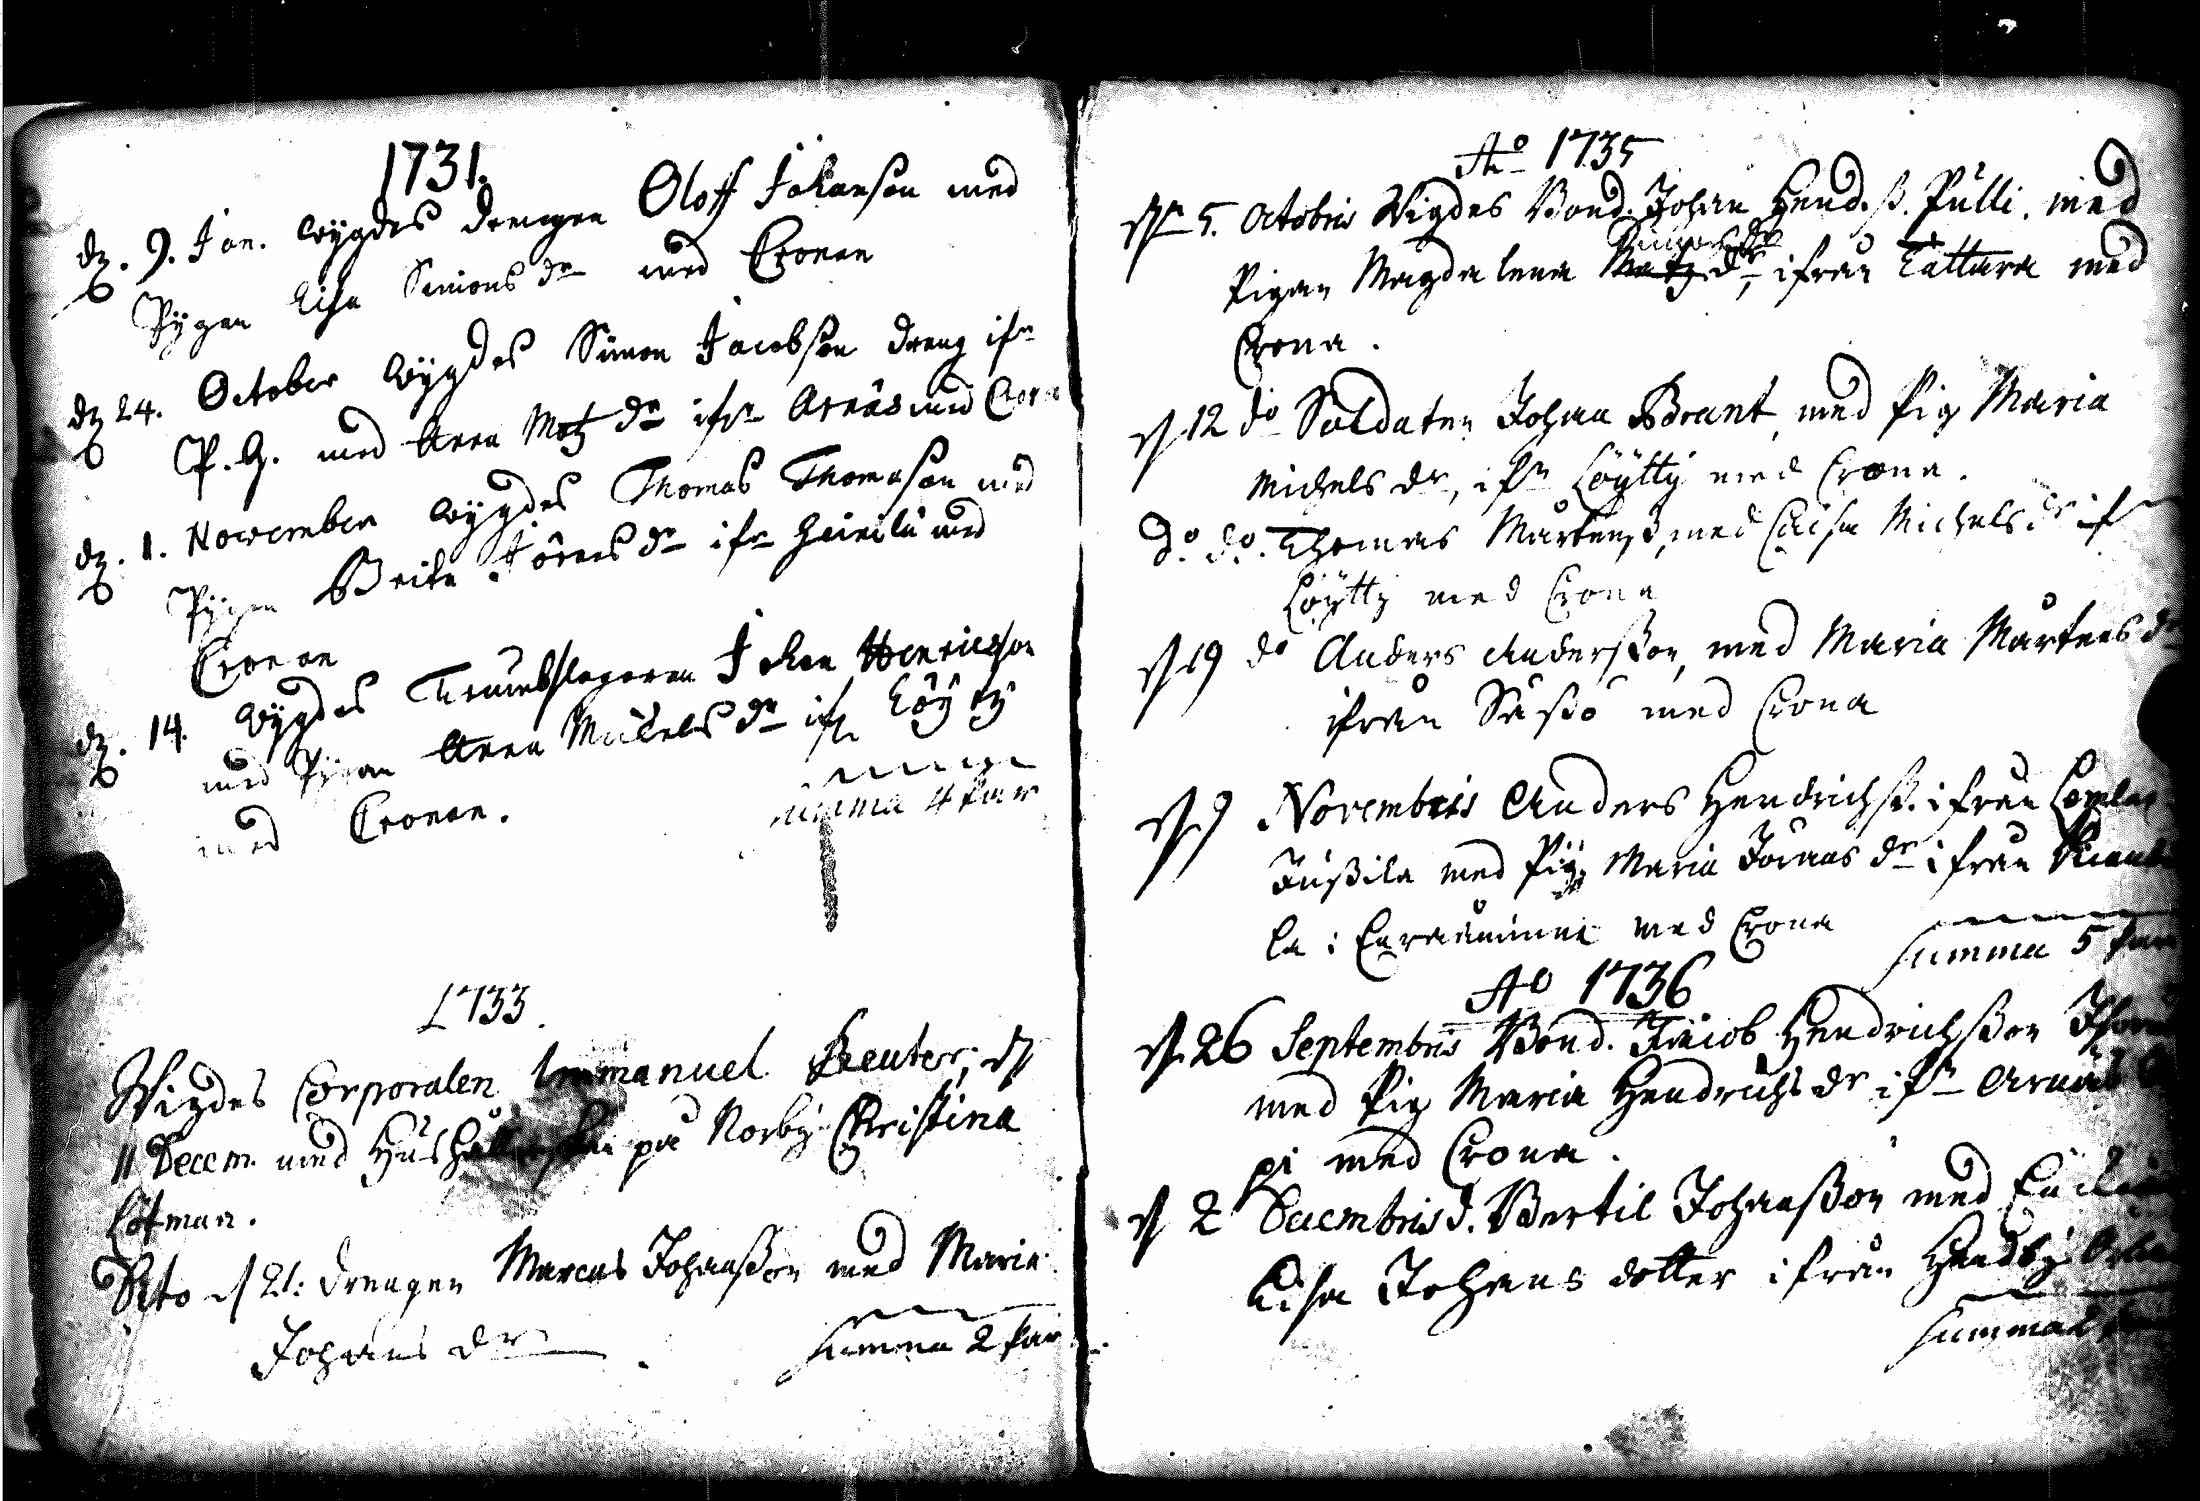 1731.
dz. 9. Jan. wÿgdes drengen Oloff Johanson med
Pÿgan Lisa Simons dr med Cronan
dz 24. October wÿgdes Simon Jacobson dreng ifr
P. G. med Anna Matz dr ifr Arnäs med Crona
dz. 1. November wÿgdes Thomas Thomason med
Pÿgan Brita Jörens dr ifr med
Cronan
dz. 14. wÿgdes Trumbslagaren Johan Henricson
med Pÿgan Anna Mickels dr ifr Löÿty
med Cronan.
summa 4 Par
1733.
Wigdes Corporalen Immanuel Reuter, d
11 Decem. med Hushållerskan på Norby Christina
Lötman.
Dito d 21: drengen Marcus Johansson med Maria
Johans dr
summa 2 Par
Ao 1735
d 5. Octobris Wigdes Bond. Johan Hend.ß. Pulli. med
Pigan Magdalena Matz dr, ifrån Tattara med
Crona.
d 12 do Soldaten Johan Brant, med Pig Maria
Michels dr, ifr Löÿtty med Crona.
do do. Thomas Mårtenß, med Caisa Michels dr ifr
Löÿtty med Crona
d 19 do Anders Andersson, med Maria Mårtens dr
ifrån Säßö med Crona
d 9 Novembris Anders Hendrichß. ifrån
Jußila med Pig. Maria Jönas dr ifrån
la i med Crona
summa 5 Par
Ao 1736
d 26 Septembris Bond. Jacob Hendrichßon
med Pig Maria Hendrichs dr ifr Arnäs
pi med Crona.
d 2 Decembris d. Bertil Johanßon med
Lisa Johans dotter ifrån
summa 2